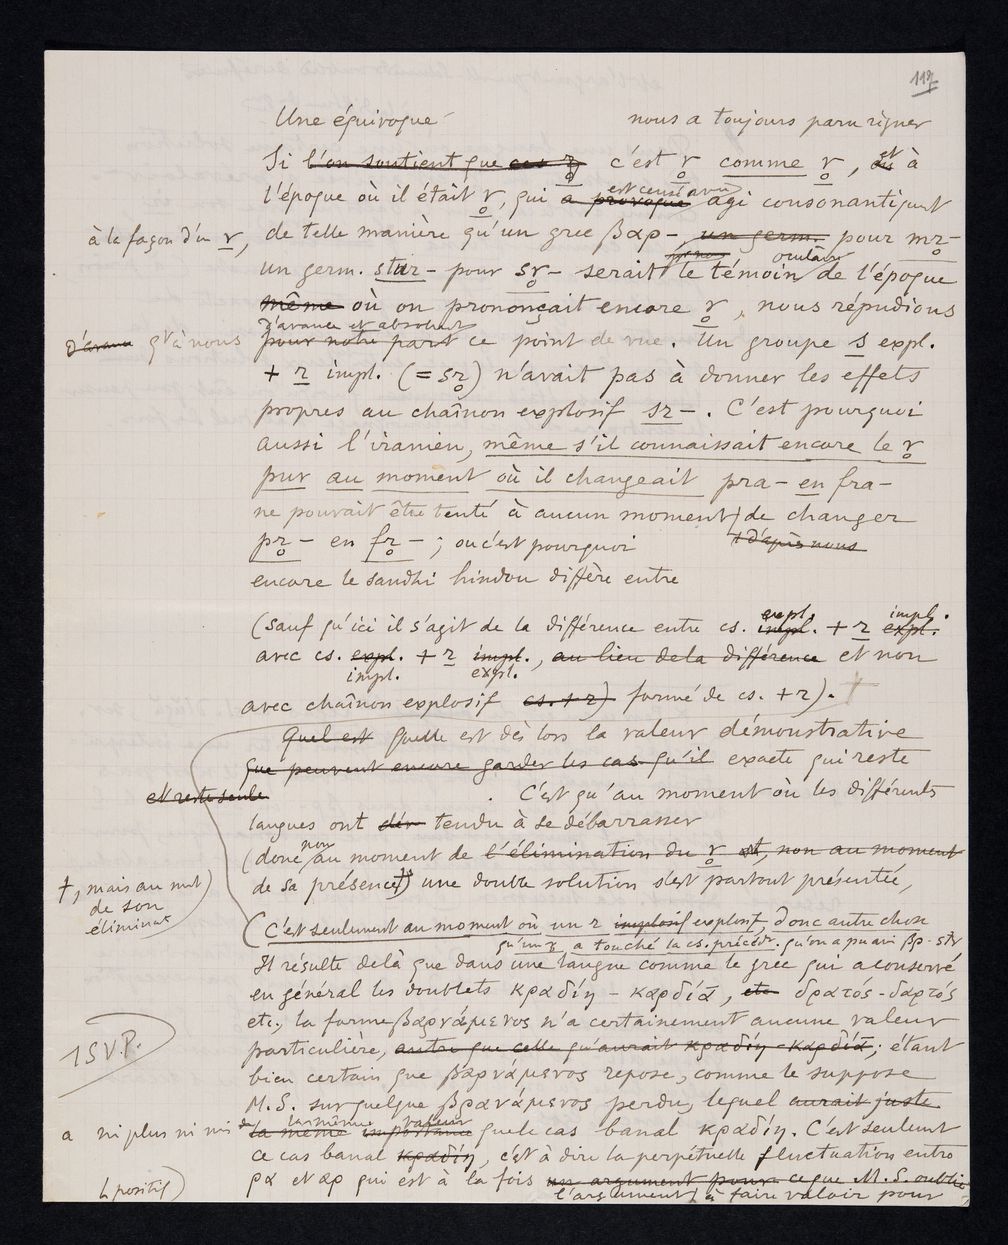 117
Une équivoque nous a toujours paru régner
Si l'on soutient que ces r̥ c'est r̥ comme r̥, et à
l'époque où il était r̥, qui a provoqué est censé avoir agi consonantiquement
à la façon d'un r, de telle manière qu'un grec βαρ-, un germ. pour mr̥-
un germ. stur- pour sr̥- serait pr nous le témoin oculaire de l'époque
même où on prononçait encore r̥, nous répudions
d'avance qt à nous pour notre part d'avance et absolument ce point de vue. Un groupe s expl.
+ r impl. (= sr̥) n'avait pas à donner les effets
propres au chaînon explosif sr-. C'est pourquoi
aussi l'iranien, même s'il connaissait encore le r̥
pur au moment où il changeait pra- en fra-
ne pouvait être tenté à aucun moment de changer
+ d'après nous
pr̥- en fr̥-; ou c'est pourquoi
encore le sandhi hindou diffère entre
(sauf qu'ici il s'agit de la différence entre cs. impl. expl. + r expl. impl.
avec cs. expl. impl. + r impl. expl., au lieu de la différence et non
avec chaînon explosif cs. + r) formé de cs. + r). +
Quel est Quelle est dès lors la valeur démonstrative
que peuvent encore garder les cas qu'il exacte qui reste
et reste seule. C'est qu'au moment où les différents
langues ont dév tendu à se débarrasser
(donc non au moment de l'élimination du r̥ et, non au moment
de sa présence +) une double solution s'est partout présentée,
+, mais au mnt)
de son
éliminat
(C'est seulement au moment où un r implosif explosif, donc autre chose
qu'un r̥ a touché la cs. précéd. qu'on a pu avoir
Il résulte de là que dans une langue comme le grec qui a conservé
en général les doublets κραδίη - καρδίᾱ, etc δρατός - δαρτός
etc., la forme βαρνάμενος n'a certainement aucune valeur
TSVP.
particulière, autre que celle qu'aurait κραδίη - καρδίᾱ; étant
bien certain que βαρνάμενος repose, comme le suppose
M. S. sur quelque βρανάμενος perdu, lequel aurait juste
a ni plus ni moins de la même importance la même valeur que le cas banal κραδίη. C'est seulement
ce cas banal κραδίη, c'est à dire la perpétuelle fluctuation entre
ρα et αρ qui est à la fois un argument pour ce que M. S. oublie
(positif) l'argument à faire valoir pour